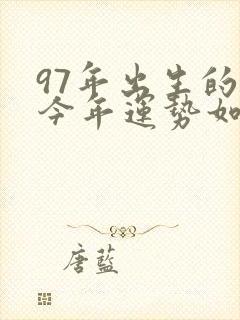 97年出生的
今年運勢如
唐藍